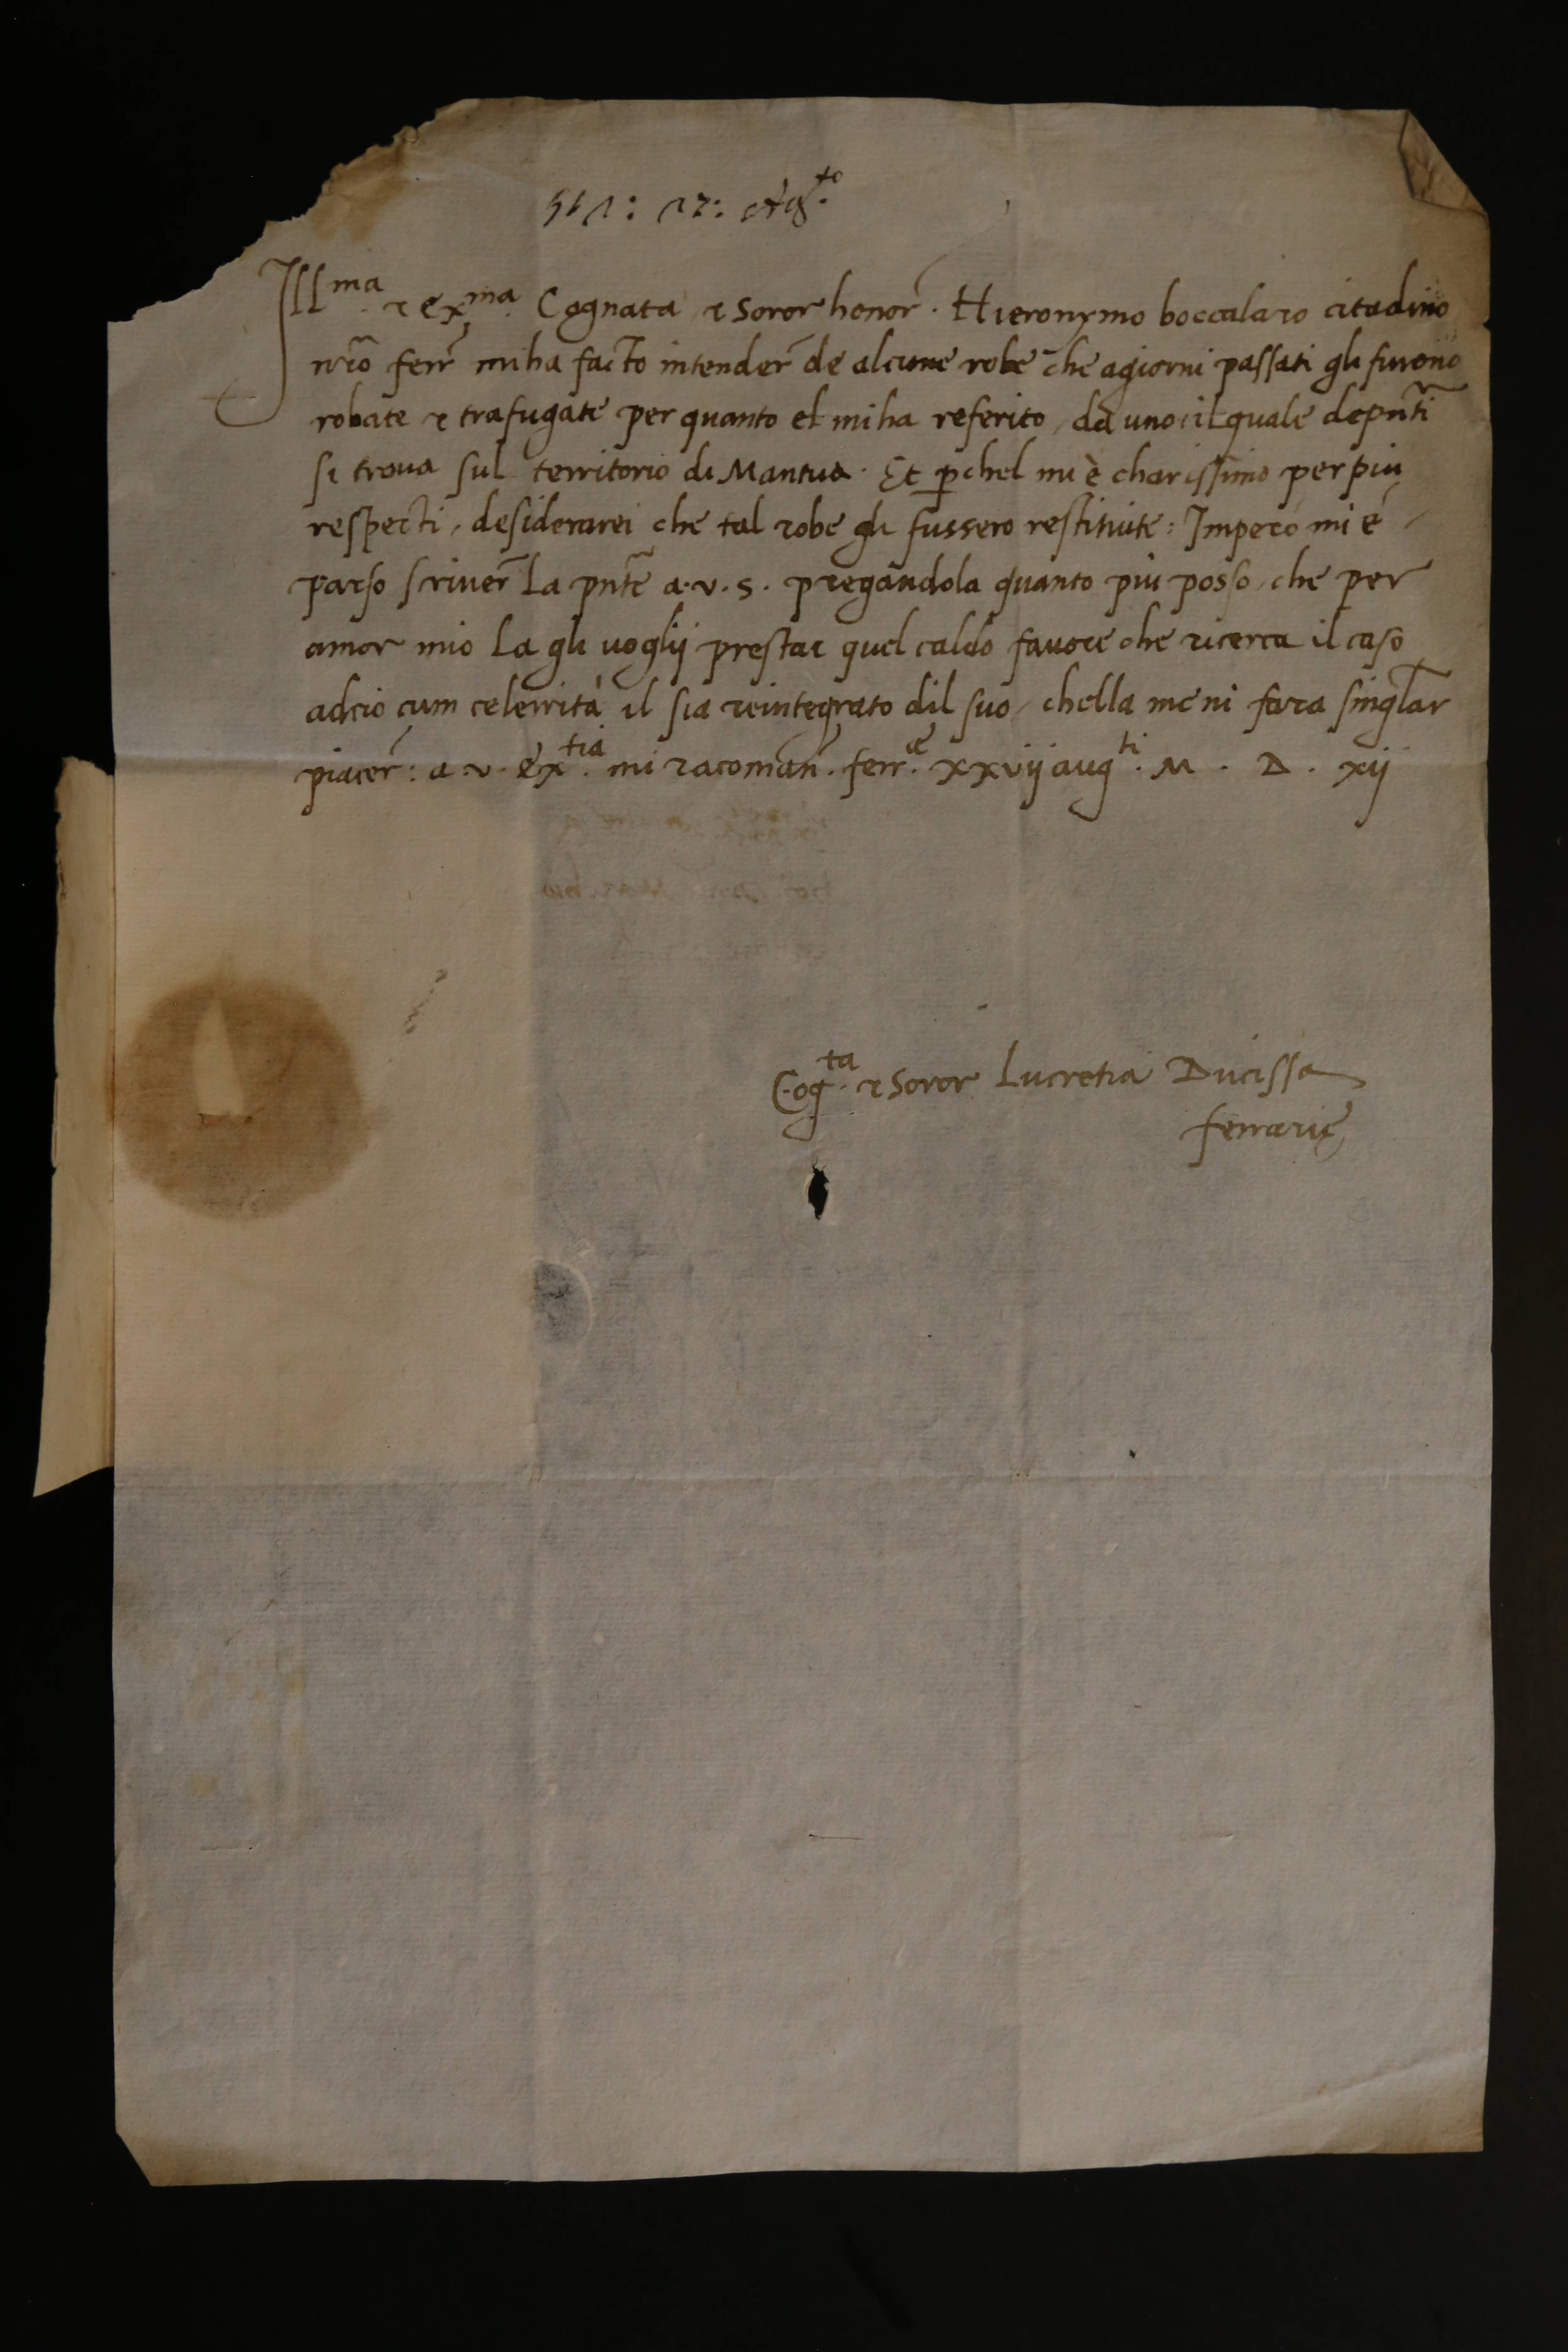 512: 27: Ag.to
Ill.ma et ex.ma Cognata et Soror honor. Hieronymo boccalaro citadino
nr̃o ferr̃ miha facto intender̃ de alcune robe che agiorni passati gli furono
robate et trafugate per quanto el miha referito, da uno il quale depñti
si troua sul territorio di Mantua. Et ꝑchel mi è charissimo per piu
respecti, desiderarei che tal robe gli fussero restituite: Imperò mi è
parso scriuer̃ La pñte a. v. s. pregandola quanto piu posso, che per
amor mio La gli uoglij prestar quel caldo fauore che ricerca il caso
adcio cum celerrità il sia reintegrato dil suo, chella me ni fara singl̃ar
piacer̃: a. v. Ex.tia mi racomañ. ferr.æ xxvij aug.ti M. D. xij
Cog.ta et Soror Lucretia Ducissa
ferrarię